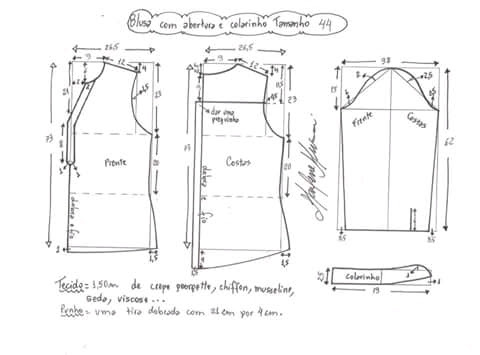 Blusa com abertura e colarinho Tamanho 44
26,5
9
12
4
21
23
1,5
73
20
Frente
dobra e fio
1,5
26,5
9
12
4
11,5
23
dar uma
preguinha
73
Costas
20
dobra e fio
1,5
1,5
38
2
2,5
15
Frente
Costas
62
3,5
3,5
2,5
Colarinho
19
Tecido = 1,50m de crepe georgette, chiffon, musseline,
seda, viscose...
Punho = uma tira dobrada com 21cm por 4cm.